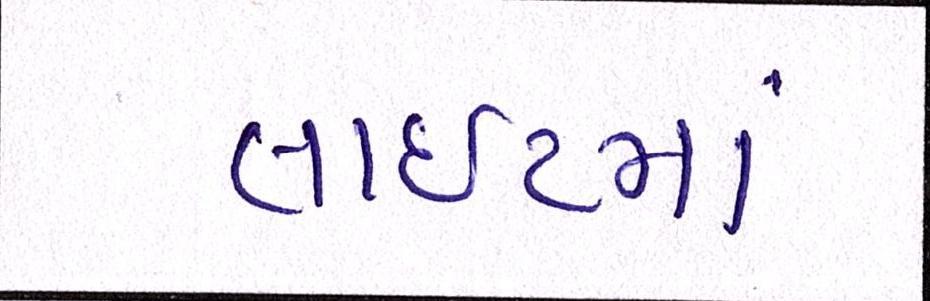 લાઈટમાં